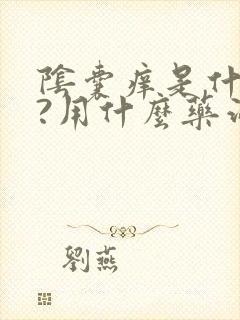 陰囊痒是什
?用什麼藥治
劉燕